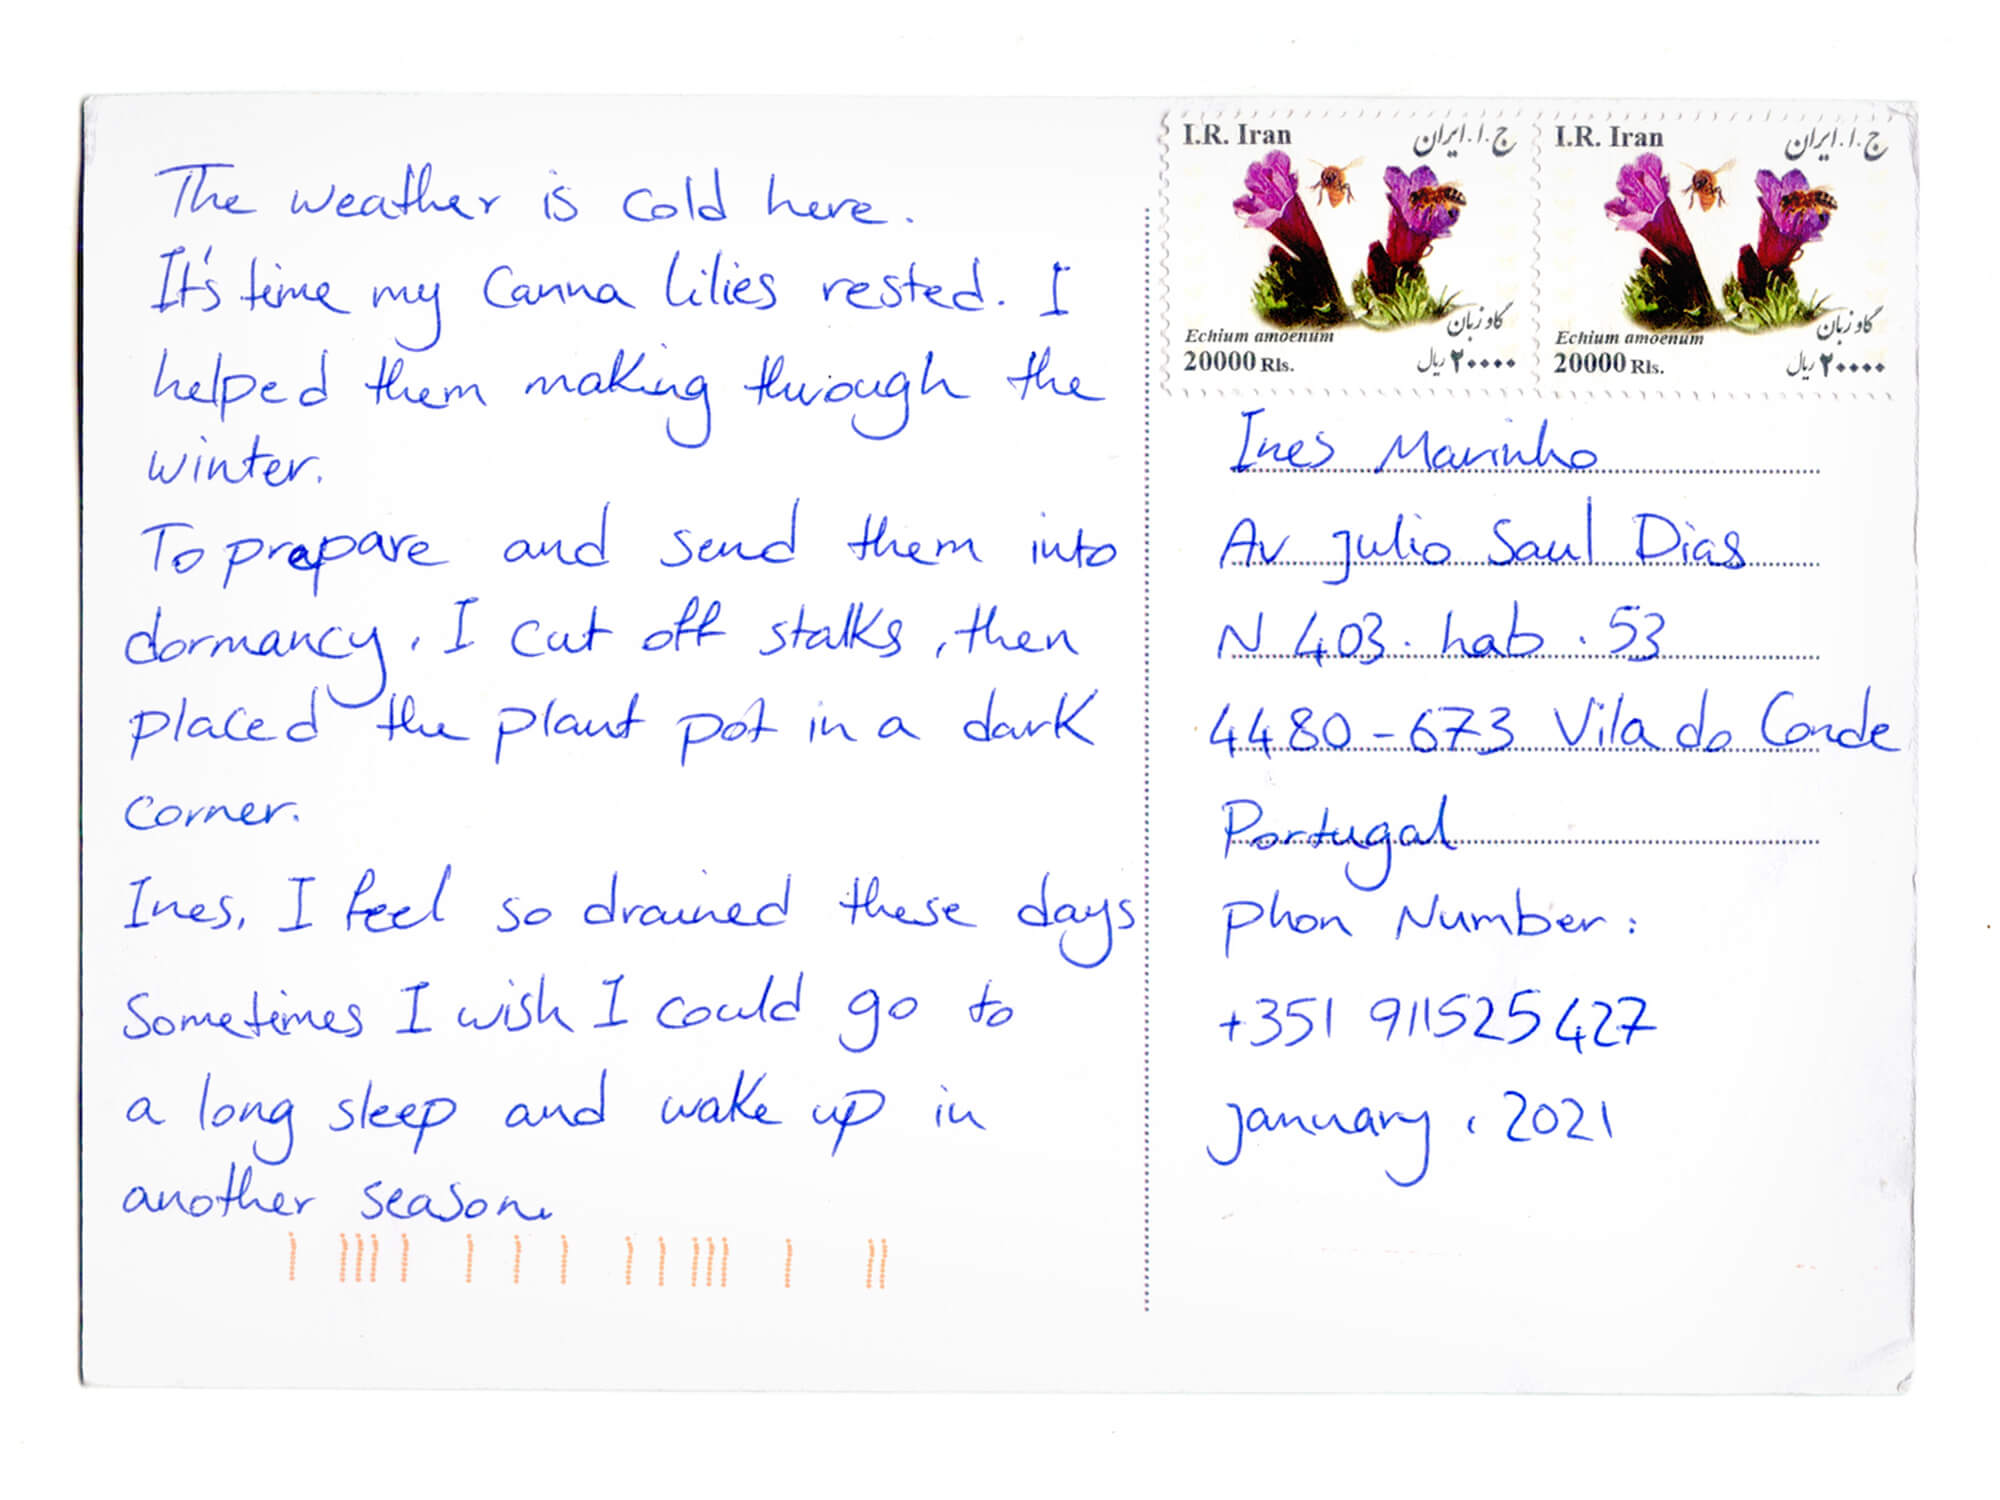 The weather is cold here.
It's time my Canna lilies rested. I
helped them making through the
winter.
To prepare and send them into
dormancy, I cut off stalks, then
placed the plant pot in a dark
corner.
Ines, I feel so drained these days
Sometimes I wish I could go to
a long sleep and wake up in
another season.
I.R. Iran ج.ا.ایران
Echium amoenum گاو زبان
20000 Rls. ۲۰۰۰۰ ریال
I.R. Iran ج.ا.ایران
Echium amoenum گاو زبان
20000 Rls. ۲۰۰۰۰ ریال
Ines Marinho
Av Julio Saul Dias
N 403. hab. 53
4480-673 Vila do Conde
Portugal
Phon Number:
+351 911525427
January, 2021